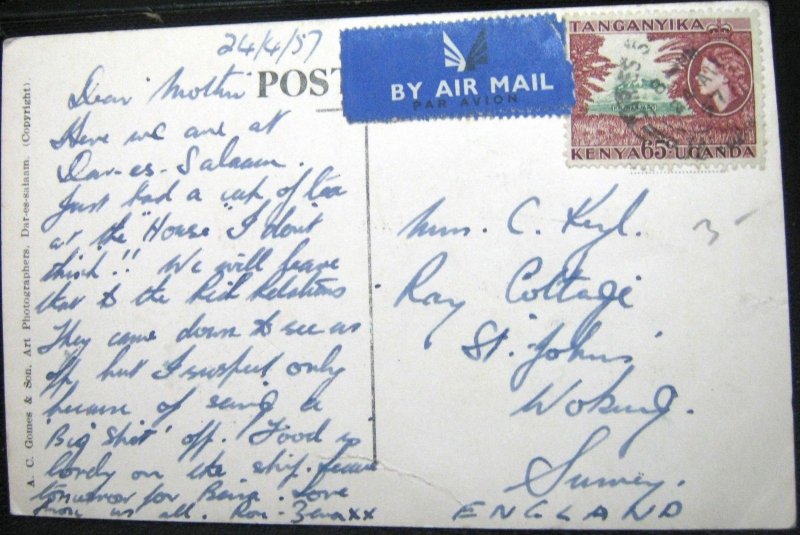 24/4/57
POST
BY AIR MAIL
PAR AVION
TANGANYIKA
KENYA 65c UGANDA
Dear Mother
Here we are at
Dar-es-Salaam.
Just had a cup of tea
at the "House" I don't
think!! We will leave
that to the Rich Relations
They came down to see us
off, but I suspect only
because of seeing a
'Big Shit' off. Food is
lovely on the ship. Leave
tomorrow for Beira. Love
from us all. Ron - xx
Mrs. C.
Ray Cottage
St. Johns
Woking.
Surrey.
ENGLAND
A. C. Gomes & Son, Art Photographers, Dar-es-salaam. (Copyright).